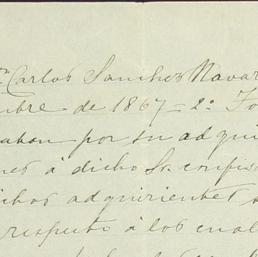 Carlos Sanchez Navar
mbre de 1867 = 2º Fo
aban por su adqui
nes á dicho Sr. confis
ichos adquirientes
respecto á los cual